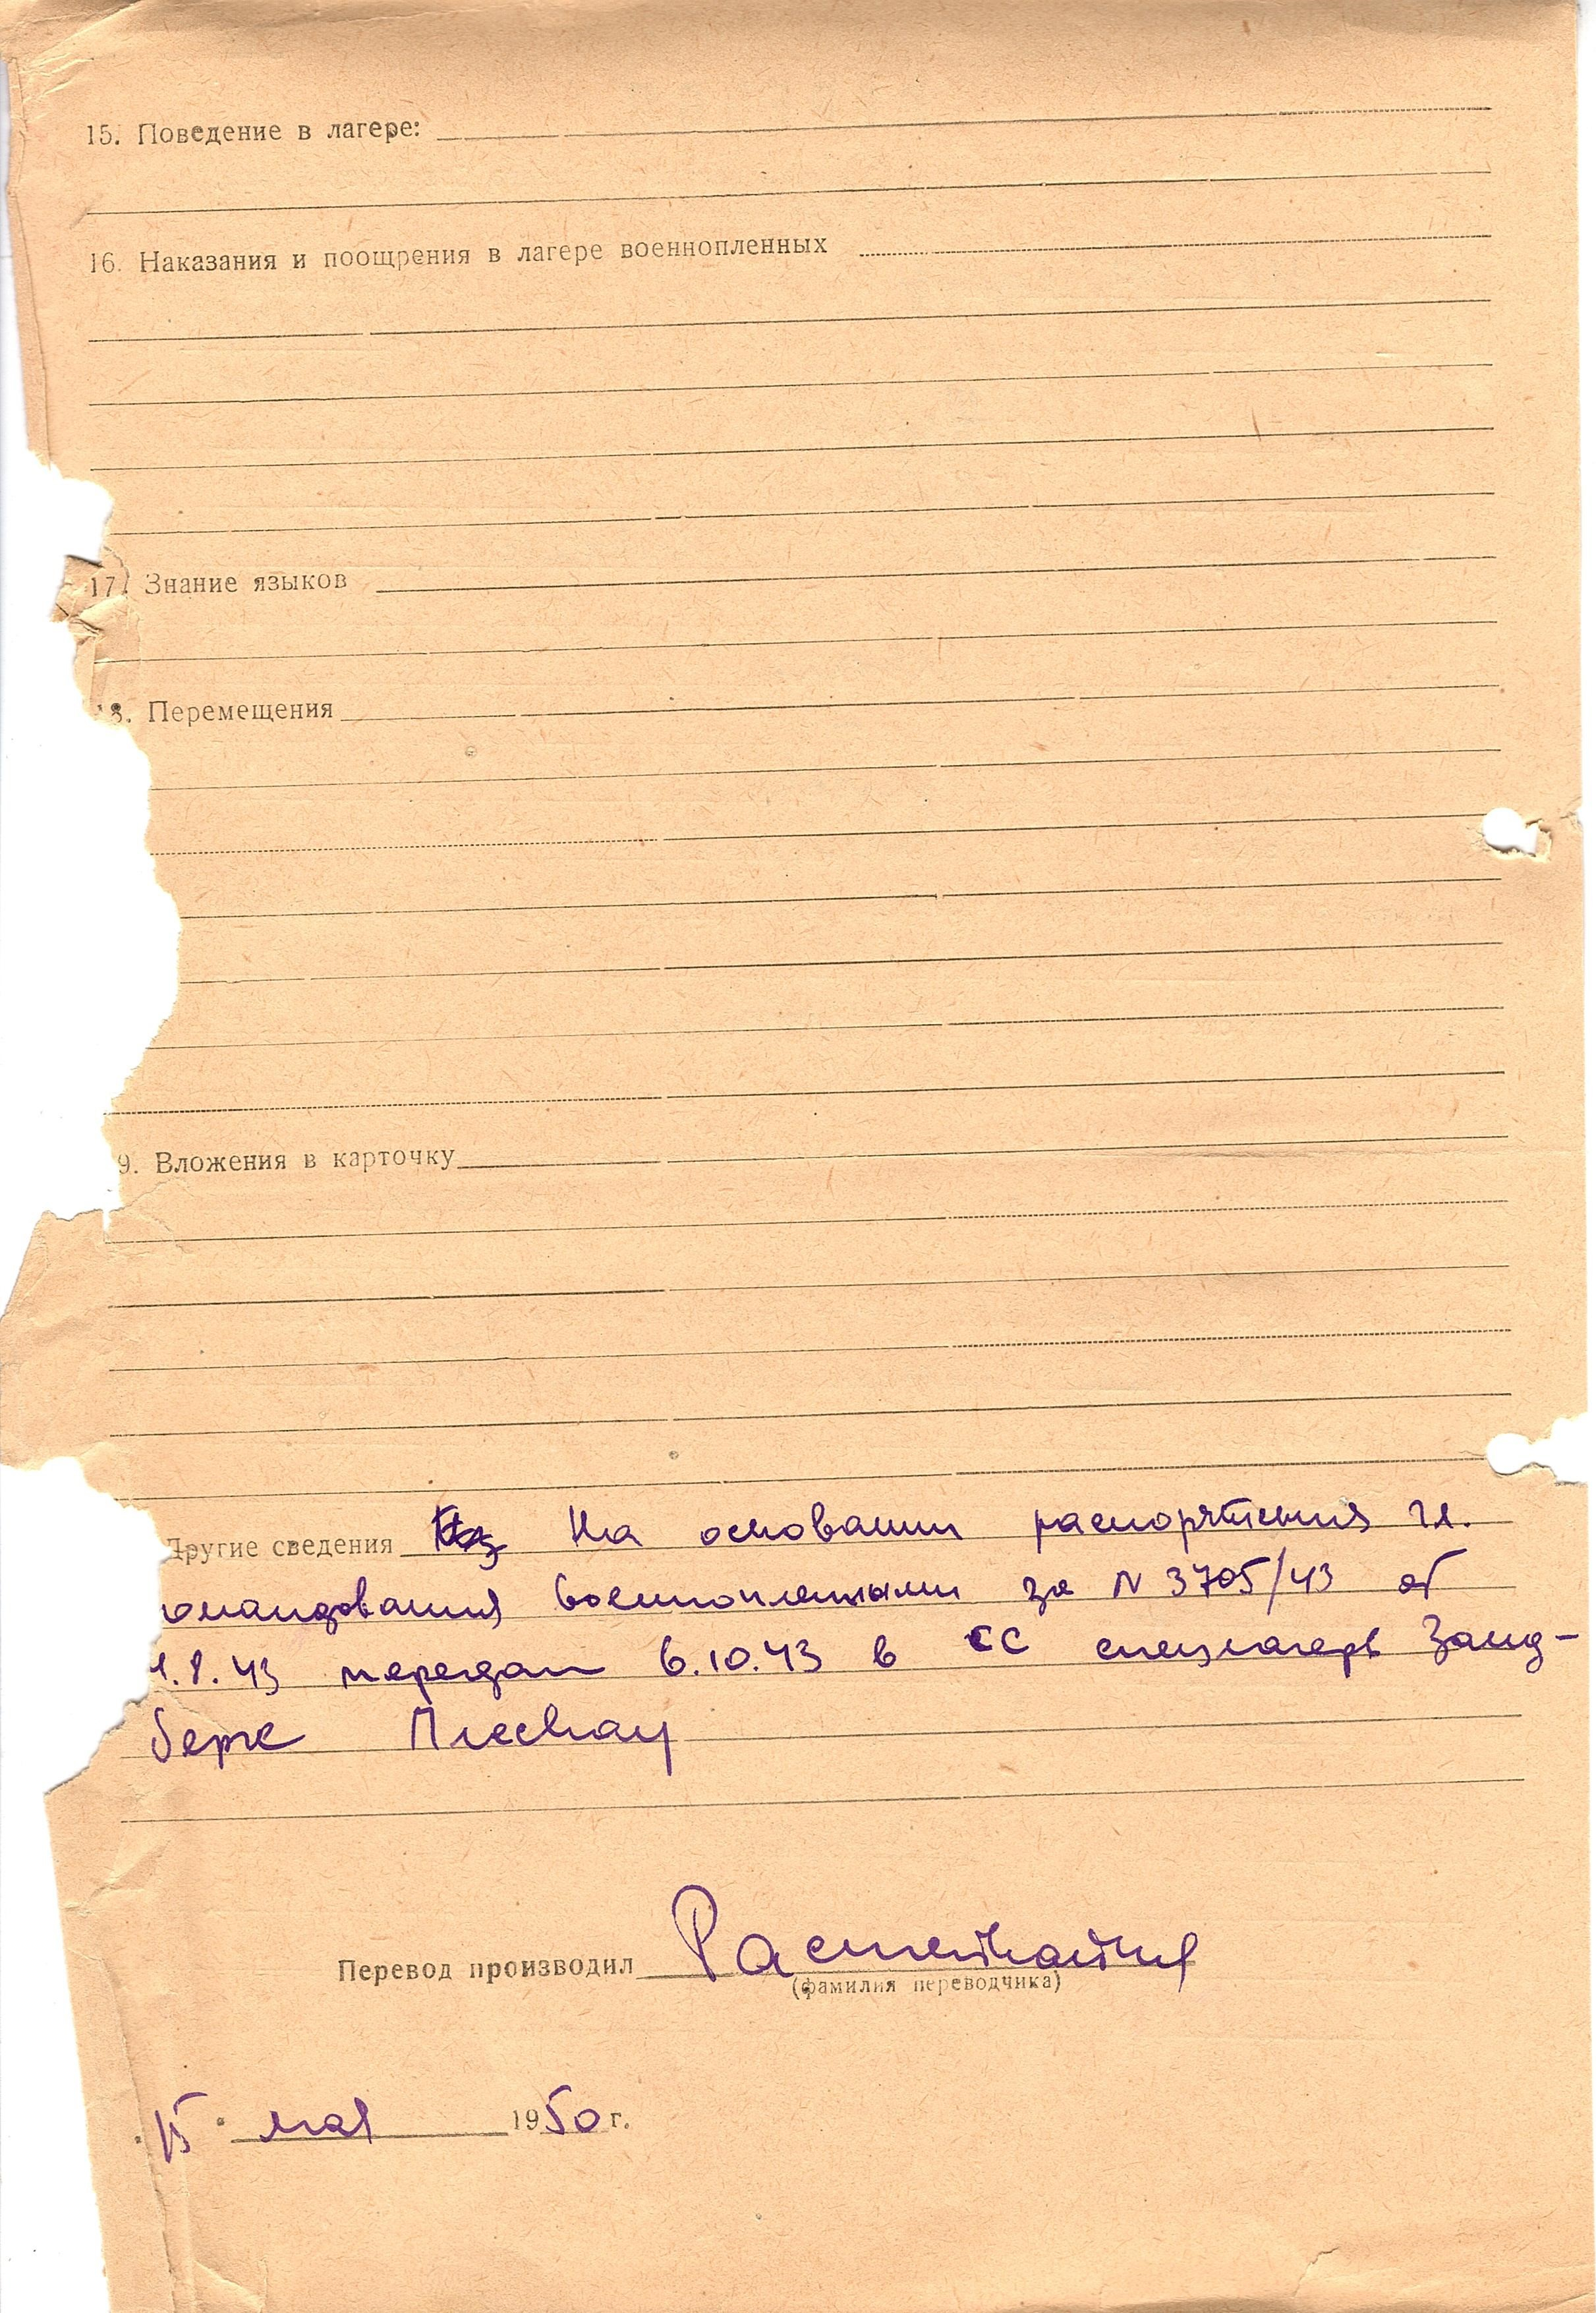 15. Поведение в лагере:
16. Наказания и поощрения в лагере военнопленных
17. Знание языков
8. Перемещения
9. Вложения в карточку
Другие сведения На основании распоряжения гл.
омандования военнопленными за N 3705/43 от
1.8.43 передан 6.10.43 в СС спецлагерь Занд-
берге
Перевод производил
(фамилия переводчика)
15 мая 1950 г.